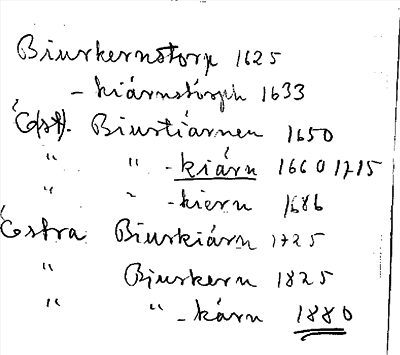 Biurkernstorp 1625
- kiärnstorph 1633
Öst). Biurtiärnen 1650
" " - kiärn 1660 1715
" " - kiern 1686
Östra Biurkiärn 1725
" Bjurkern 1825
" " - kärn 1880